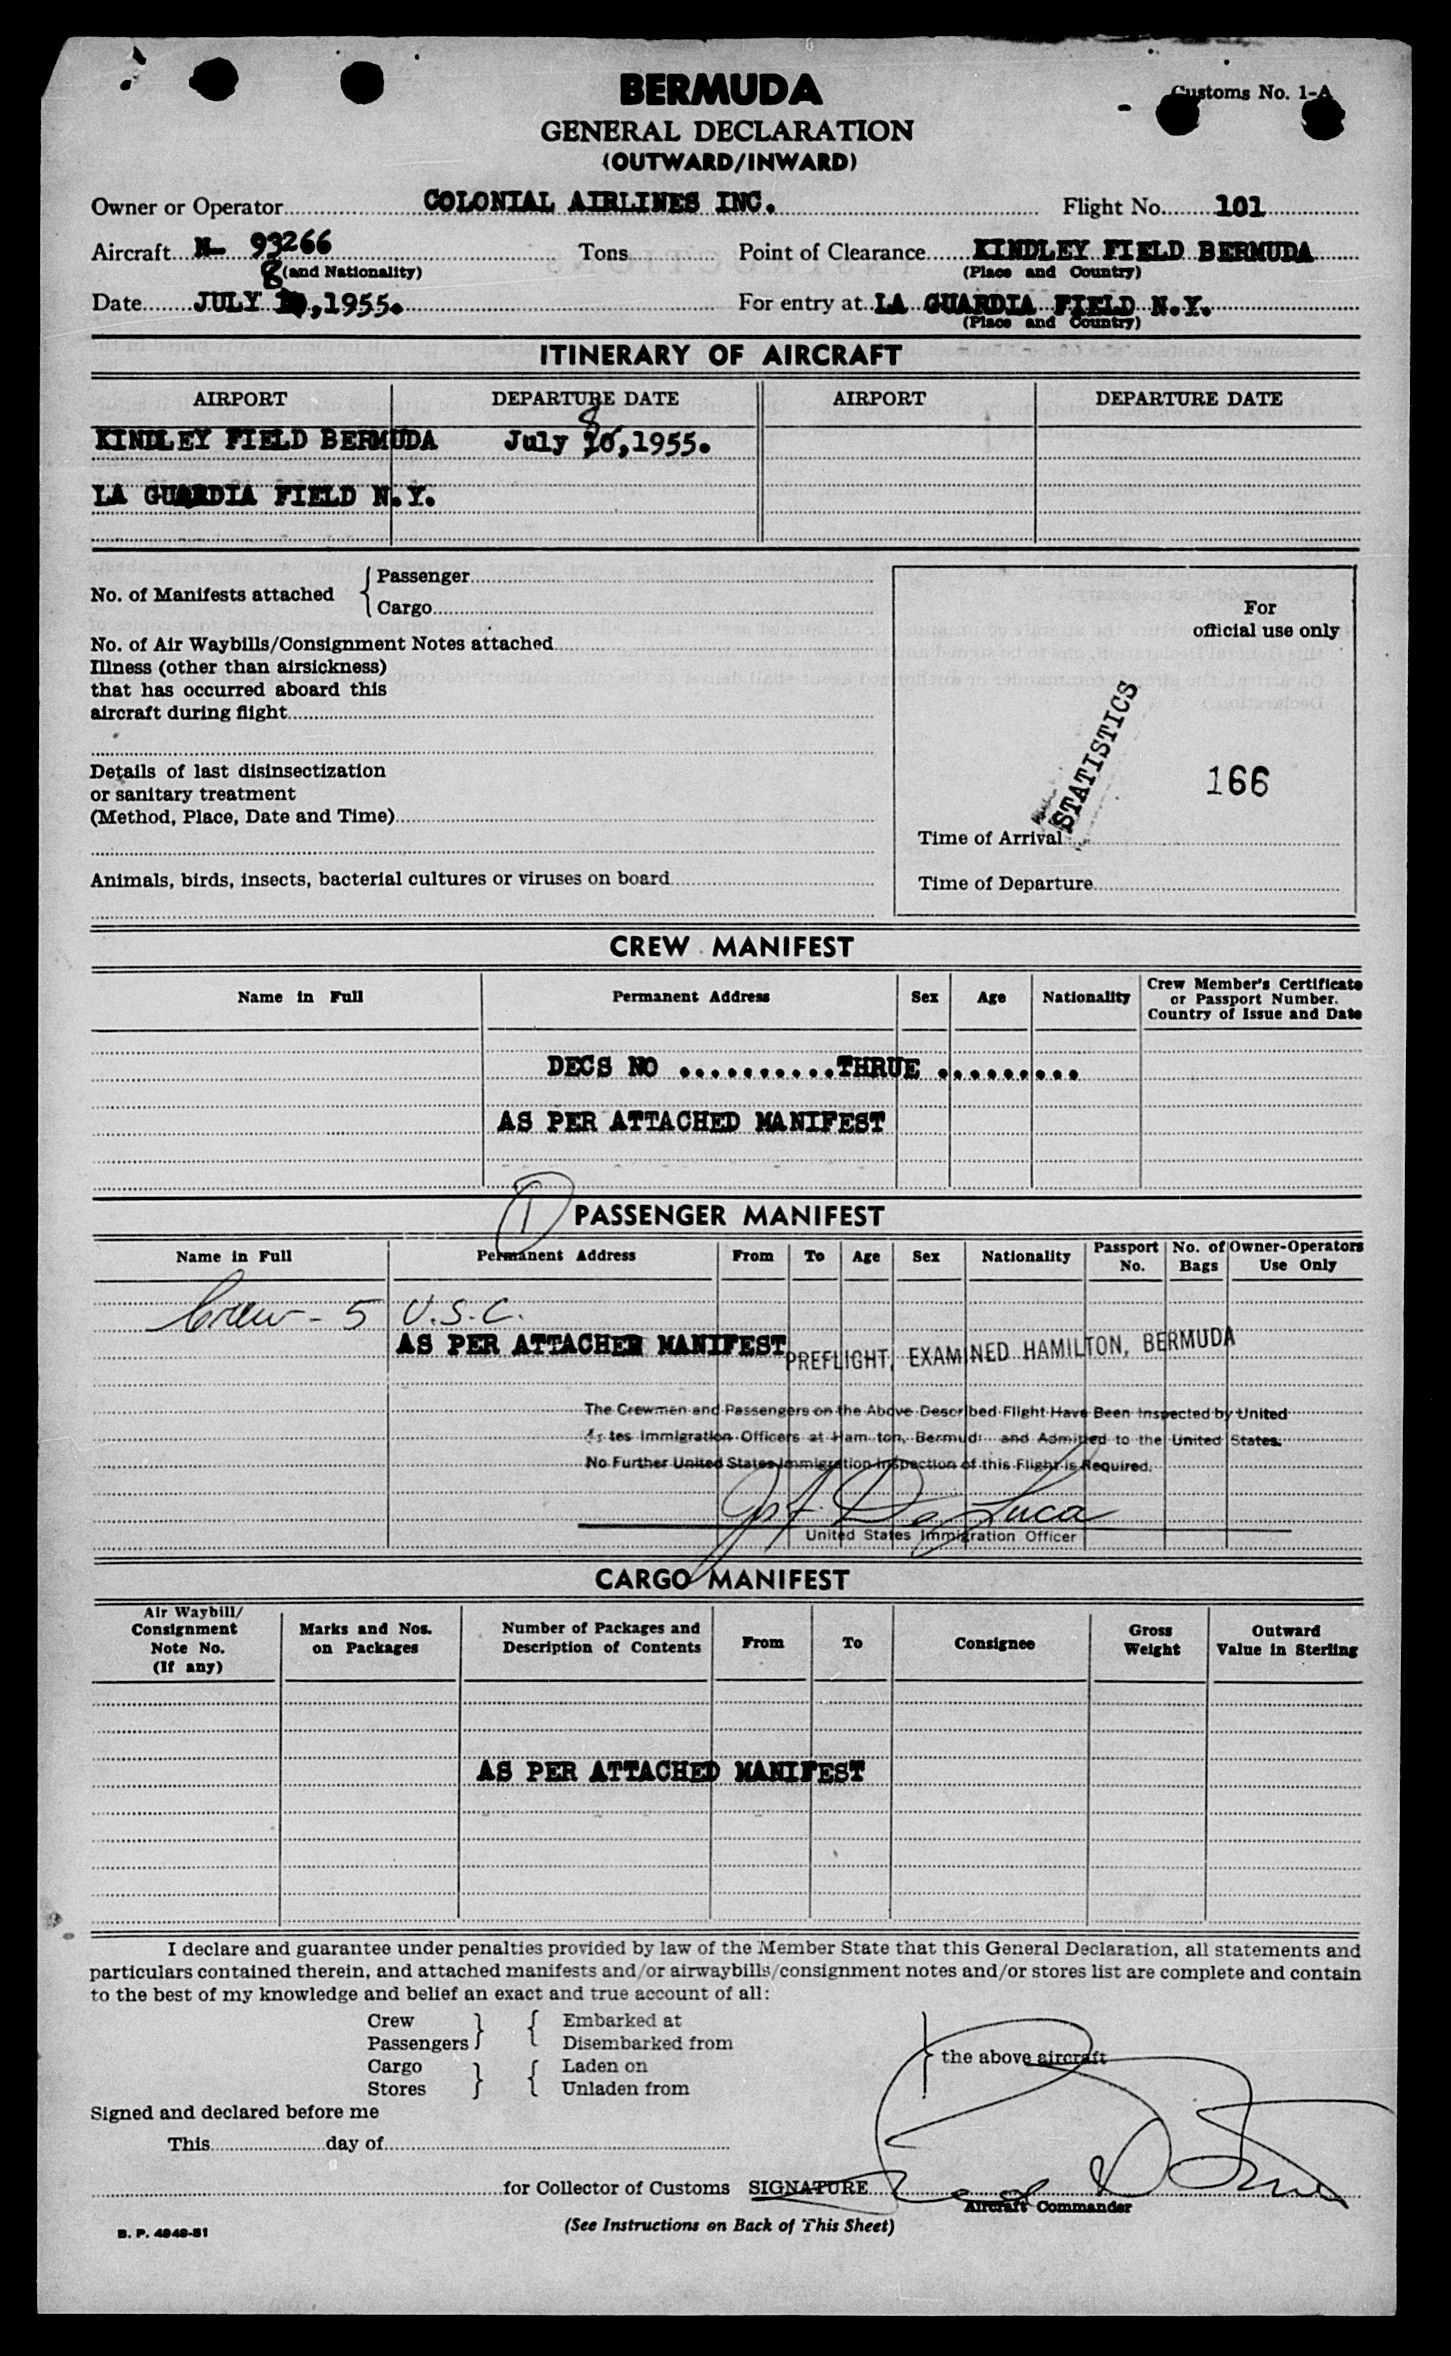 BERMUDA
Customs No. 1-A
GENERAL DECLARATION
(OUTWARD/INWARD)
Owner or Operator COLONIAL AIRLINES INC. Flight No. 101
Aircraft N- 93266 Tons Point of Clearance KINDLEY FIELD BERMUDA
(and Nationality) (Place and Country)
8
Date JULY 10,1955. For entry at LA GUARDIA FIELD N.Y.
(Place and Country)
ITINERARY OF AIRCRAFT
AIRPORT DEPARTURE DATE AIRPORT DEPARTURE DATE
8
KINDLEY FIELD BERMUDA July 10,1955.
LA GUARDIA FIELD N.Y.
No. of Manifests attached { Passenger
Cargo
For
official use only
No. of Air Waybills/Consignment Notes attached
Illness (other than airsickness)
that has occurred aboard this
aircraft during flight
STATISTICS
Details of last disinsectization
or sanitary treatment
(Method, Place, Date and Time)
166
Time of Arrival
Animals, birds, insects, bacterial cultures or viruses on board
Time of Departure
CREW MANIFEST
Name in Full Permanent Address Sex Age Nationality Crew Member's Certificate
or Passport Number.
Country of Issue and Date
DECS NO ..........THRUE .........
AS PER ATTACHED MANIFEST
1
PASSENGER MANIFEST
Name in Full Permanent Address From To Age Sex Nationality Passport No. No. of Bags Owner-Operators Use Only
Crew - 5 U.S.C.
AS PER ATTACHED MANIFEST
PREFLIGHT, EXAMINED HAMILTON, BERMUDA
The Crewmen and Passengers on the Above Described Flight Have Been Inspected by United
tes Immigration Officers at Ham ton, Bermud and Admitted to the United States.
No Further United States Immigration Inspection of this Flight is Required.
Jos. A. De Luca
United States Immigration Officer
CARGO MANIFEST
Air Waybill/
Consignment
Note No.
(If any)
Marks and Nos.
on Packages
Number of Packages and
Description of Contents
From
To
Consignee
Gross
Weight
Outward
Value in Sterling
AS PER ATTACHED MANIFEST
I declare and guarantee under penalties provided by law of the Member State that this General Declaration, all statements and
particulars contained therein, and attached manifests and/or airwaybills/consignment notes and/or stores list are complete and contain
to the best of my knowledge and belief an exact and true account of all:
Crew } { Embarked at
Passengers Disembarked from
the above aircraft
Cargo } { Laden on
Stores Unladen from
Signed and declared before me
This day of
for Collector of Customs SIGNATURE
Aircraft Commander
B. P. 4848-51
(See Instructions on Back of This Sheet)